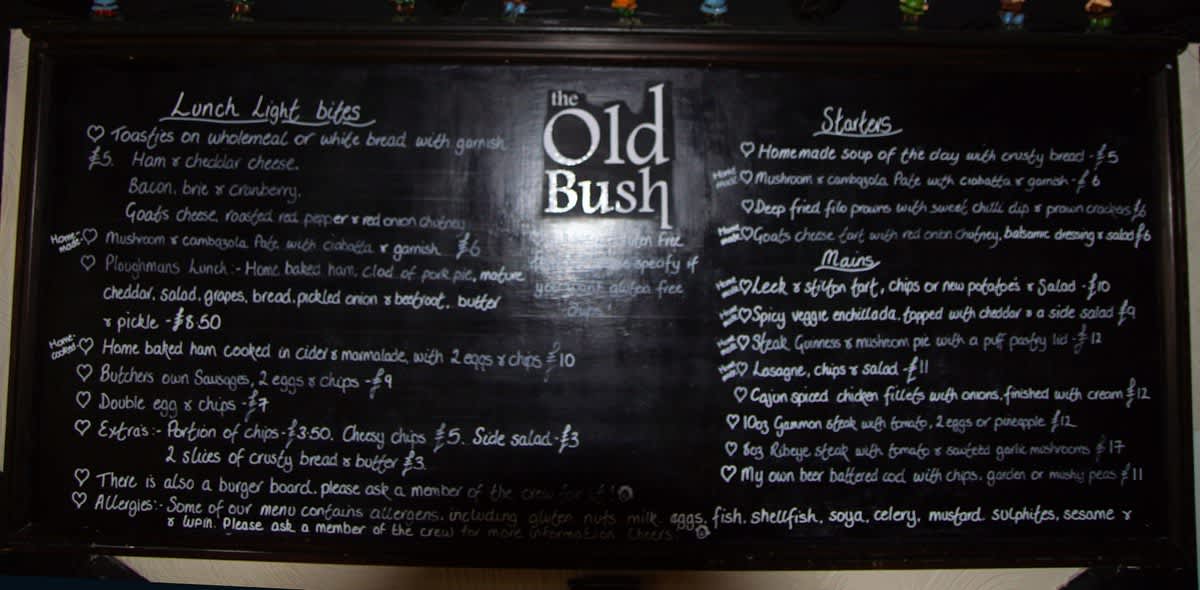 Lunch Light bites
♡ Toasties on wholemeal or white bread with garnish
£5. Ham & cheddar cheese.
Bacon, brie & cranberry.
Goats cheese, roasted red pepper & red onion chutney
Home-made ♡ Mushroom & cambazola Pate with ciabatta & garnish £6
♡ Ploughmans Lunch:- Home baked ham, clod of pork pie, mature
cheddar, salad, grapes, bread, pickled onion & beetroot, butter
& pickle - £8.50
Home-cooked ♡ Home baked ham cooked in cider & marmalade, with 2 eggs & chips £10
♡ Butchers own Sausages, 2 eggs & chips - £9
♡ Double egg & chips - £7
♡ Extra's:- Portion of chips - £3.50. Cheesy chips £5. Side salad - £3
2 slices of crusty bread & butter £3
♡ There is also a burger board, please ask a member of the crew for
♡ Allergies:- Some of our menu contains allergens, including gluten nuts milk eggs, fish, shellfish, soya, celery, mustard sulphites, sesame &
& lupin. Please ask a member of the crew for more information Cheers
the
Old
Bush
gluten free
specify if
you want gluten free
chips
Starters
♡ Homemade soup of the day with crusty bread - £5
Home made ♡ Mushroom & cambazola Pate with ciabatta & garnish - £6
♡ Deep fried filo prawns with sweet chilli dip & prawn crackers £6
Home made ♡ Goats cheese tart with red onion chutney, balsamic dressing & salad £6
Mains
Home made ♡ Leek & stilton tart, chips or new potatoe's & Salad - £10
Home made ♡ Spicy veggie enchillada, topped with cheddar & a side salad £9
Home made ♡ Steak Guinness & mushroom pie with a puff pastry lid - £12
Home made ♡ Lasagne, chips & salad - £11
♡ Cajun spiced chicken fillets with onions, finished with cream £12
♡ 10oz Gammon steak with tomato, 2 eggs or pineapple £12
♡ 8oz Ribeye steak with tomato & sauteed garlic mushrooms £17
♡ My own beer battered cod with chips, garden or mushy peas £11